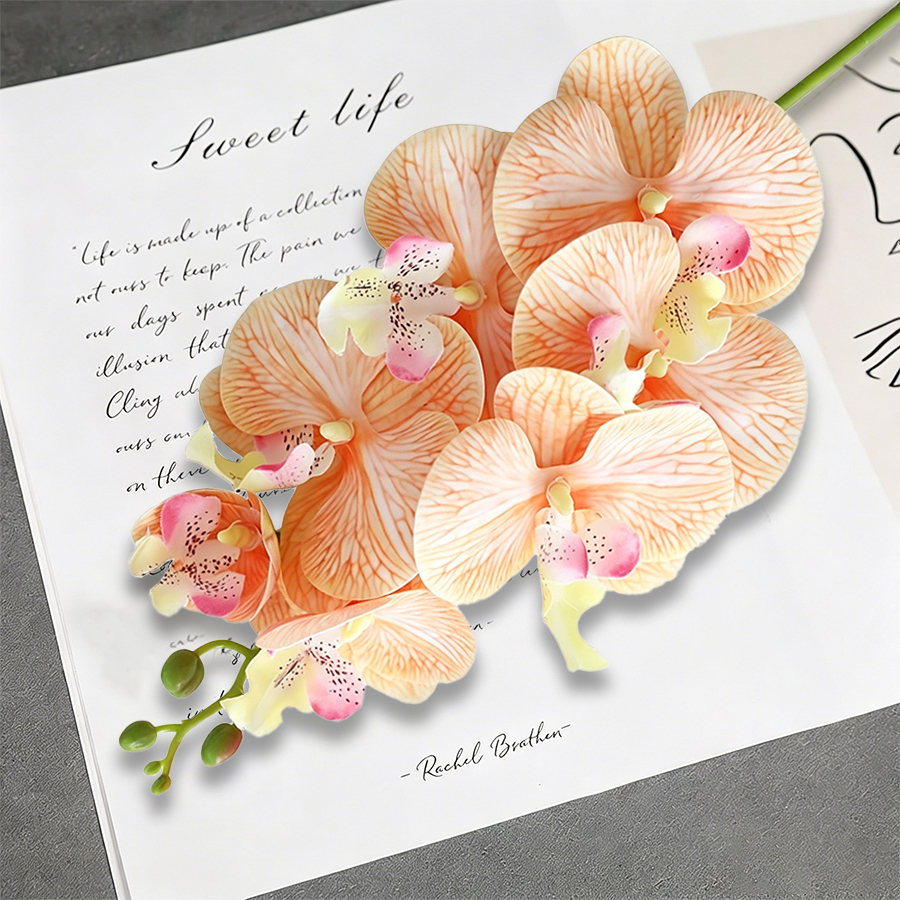 Sweet life
"Life is made up of a collection
not ours to keep. The pain we
our days spent on we t
illusion that
Cling al
ours an
on there
- Rachel Brathen-